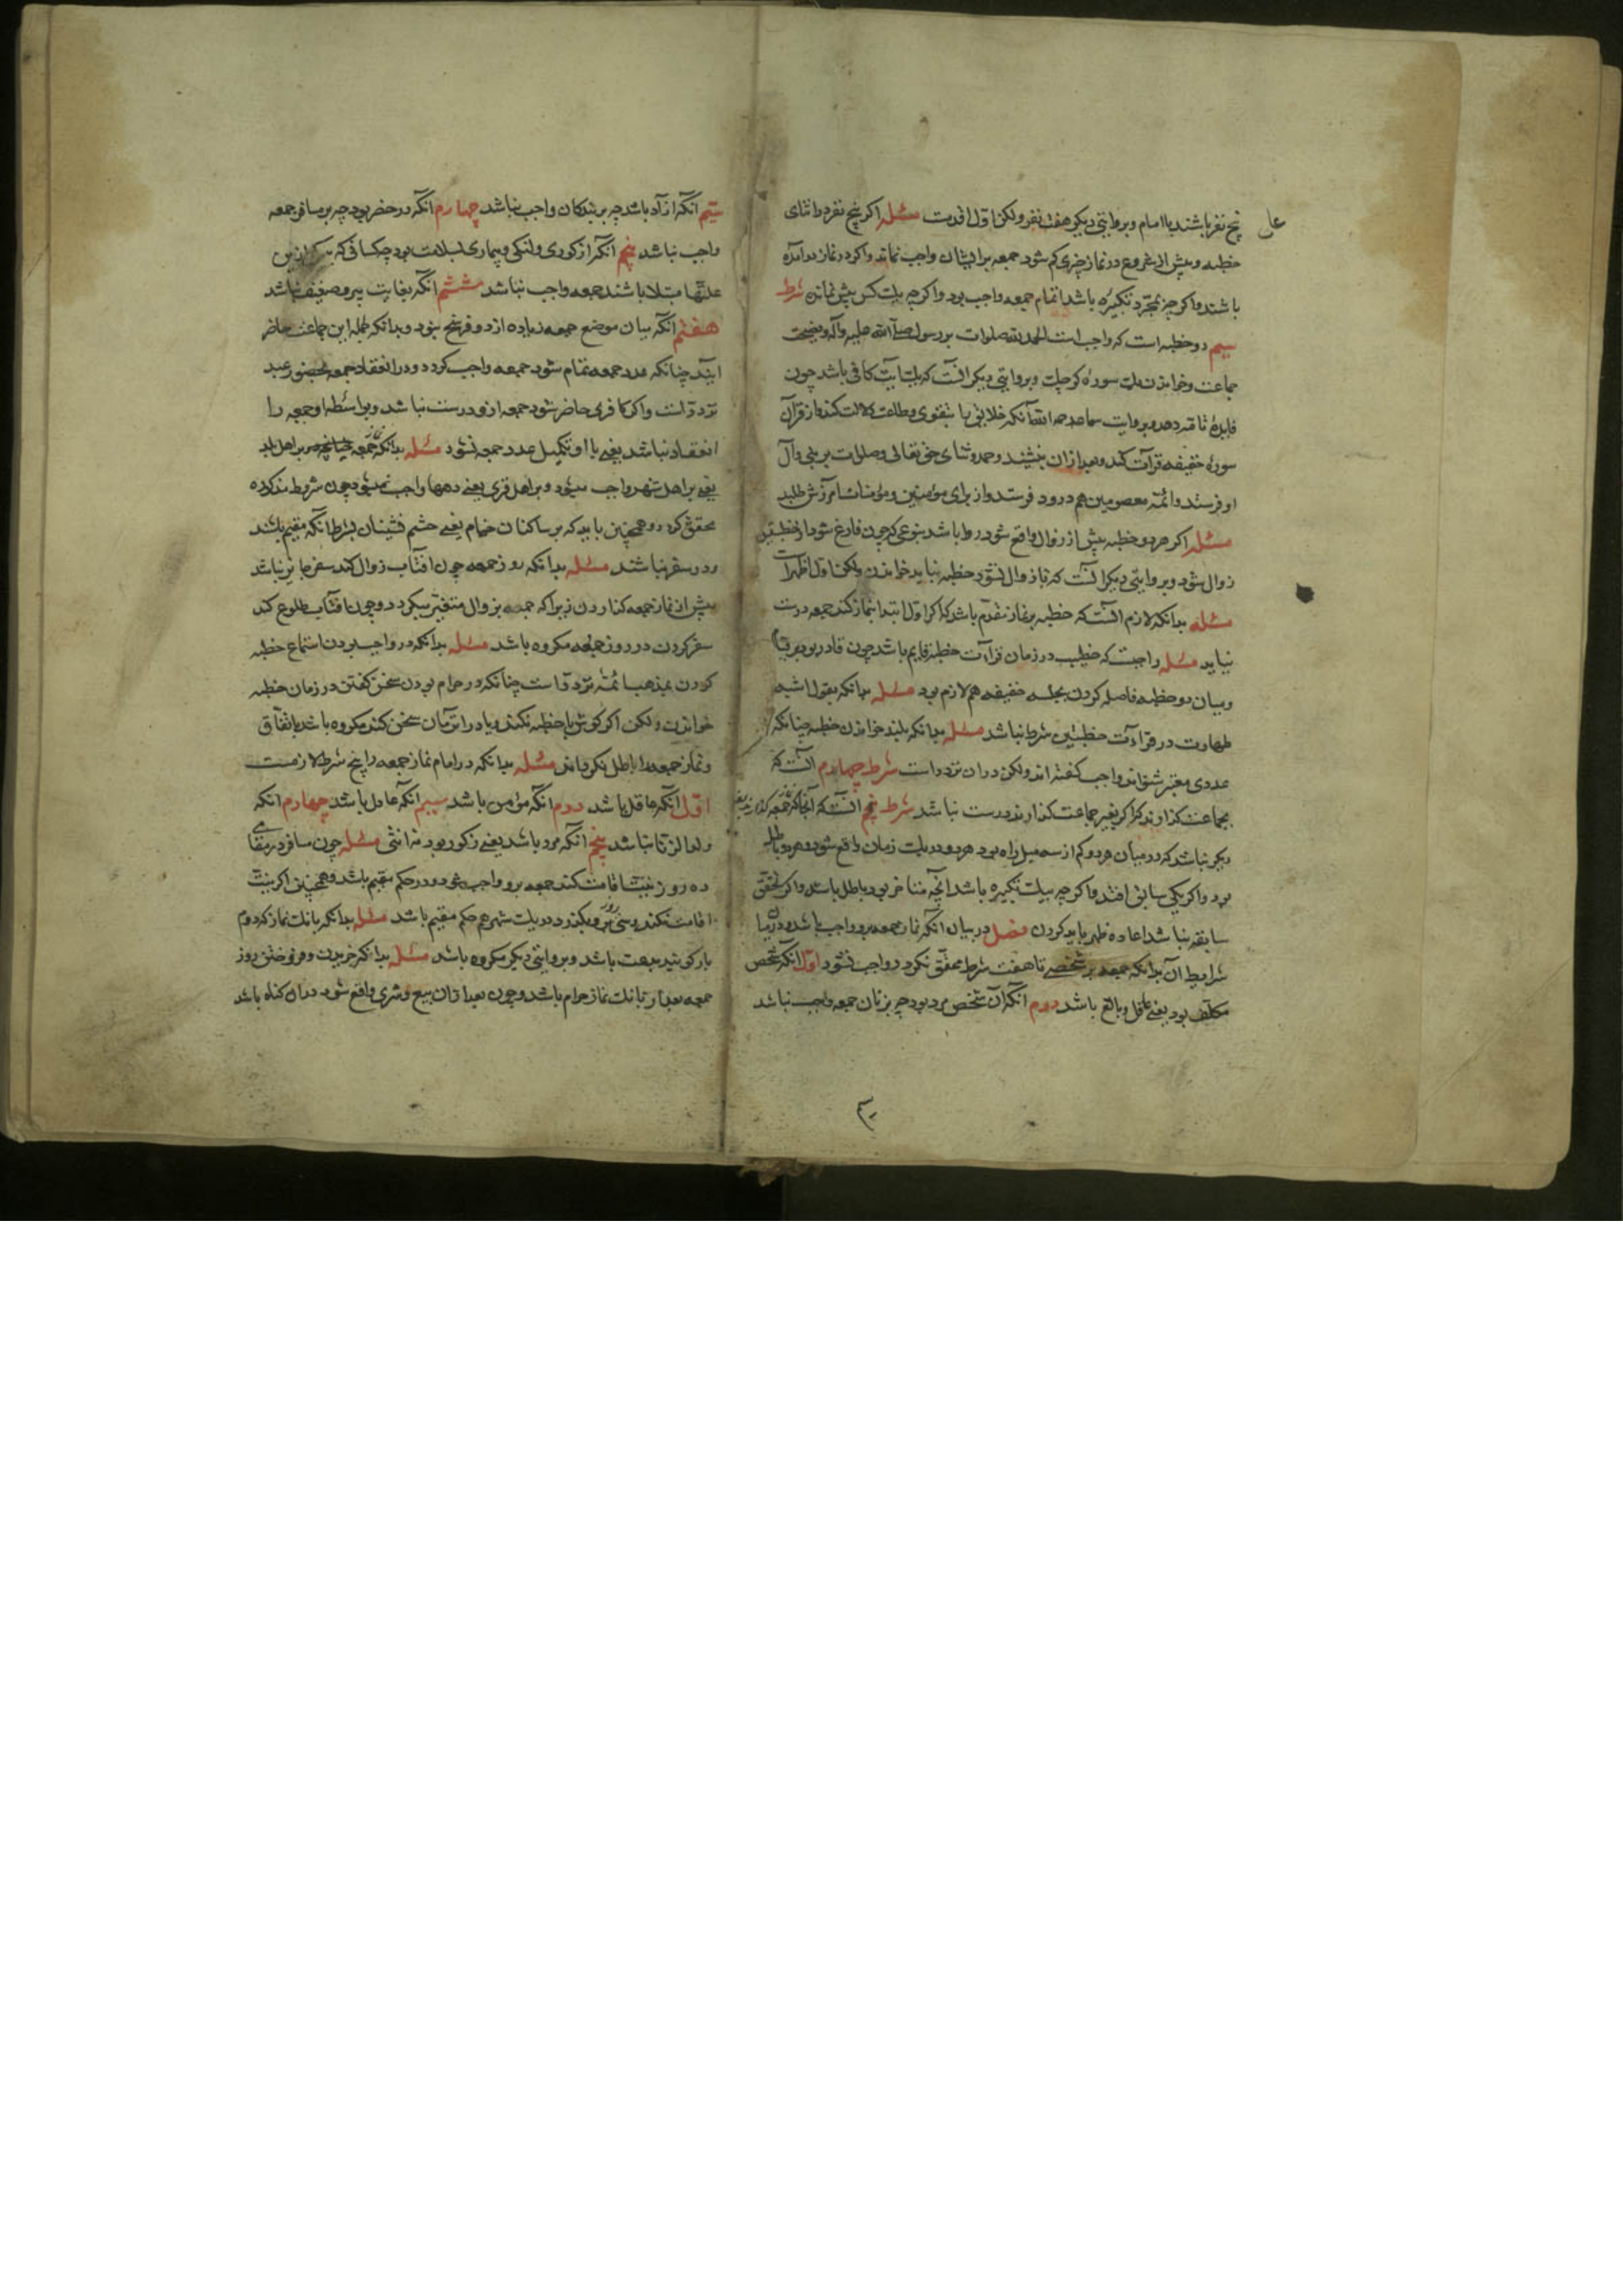 پنج نفر باشند با امام و بروایتی دیکر هفت نفر ولکن اول اقویست مسئله اکر پنج نفر در اثنای
خطبه و پیش از شروع در نماز چیزی کم شود جمعه بر ایشان واجب نماند و اکر در نماز درآمده
باشند و اکر چه بمجرد تکبیره باشد اتمام جمعه واجب بود و اکر چه یک کس پیش نمانده شرط
سیم دو خطبه است که واجب است الحمد لله صلوات بر رسول صلی الله علیه وآله و نصیحت
جماعت و خواندن یک سوره کوچک و بروایتی دیکر آنست که یک آیت کافی باشد چون
فایدهٔ تامه دهد و بروایت سماعه آنکه خلایق را بتقوی و طاعت دلالت کند و از قرآن
سورهٔ خفیفه قرآت کند و بعد از آن بنشیند و حمد و ثنای حق تعالی و صلوات بر نبی و آل
او فرستد و ائمه معصومین هم درود فرستد و از برای مؤمنین و مؤمنات آمرزش طلبد
مسئله اکر هر دو خطبه پیش از زوال واقع شود روا باشد بنوعی که چون فارغ شود از خطبتین
زوال شود و بروایتی دیکر آنست که تا زوال نشود خطبه نباید خواندن ولکن اول اظهر است
مسئله بدانکه لازم آنست که خطبه بر نماز مقدم باشد که اکر اول ابتدا بنماز کند جمعه درست
نیاید مسئله واجبست که خطیب در زمان قراءت خطبه قایم باشد چون قادر بود بر قیام
و میان دو خطبه فاصله کردن بجلسه خفیفه هم لازم بود مسئله بدانکه بقول اشبه
طهارت در قراءت خطبتین شرط نباشد مسئله بدانکه بلند خواندن خطبه چنانکه
عددی معتبر شنواند واجب کفته اند ولکن در آن تردد است شرط چهارم آنست که
بجماعت کذارند که اکر بغیر جماعت کذارند درست نباشد شرط پنجم آنست که آنجا که جمعه کذارند جمعه
دیکر نباشد که در میان هر دو کم از سه میل راه بود هر دو در یک زمان واقع شود و هر دو باطل
بود و اکر یکی سابق افتد و اکر چه بیک تکبیره باشد آنچه متاخر بود باطل باشد و اکر تحقق
سابقه نباشد اعاده ظهر باید کردن فصل در بیان آنکه نماز جمعه برو واجب باشد و در بیان
شرایط آن بدانکه جمعه بر شخصی تا هفت شرط محقق نکردد واجب نشود اول آنکه شخص
مکلف بود یعنی عاقل و بالغ باشد دوم آنکه آن شخص مرد بود چه بر زنان جمعه واجب نباشد
سیم آنکه آزاد باشد چه بر بندکان واجب نباشد چهارم آنکه در حضر بود چه بر مسافر جمعه
واجب نباشد پنجم آنکه از کوری و لنکی و بیماری بسلامت بود چه کسانی که بیکی از این
علتها مبتلا باشند جمعه واجب نباشد ششم آنکه بغایت پیر و ضعیف نباشد
هفتم آنکه میان موضع جمعه زیاده از دو فرسخ نبود و بدانکه جمله این جماعت حاضر
آیند چنانکه عدد جمعه تمام شود جمعه واجب کردد و در انعقاد جمعه بحضور عبد
تردد است و اکر کافری حاضر شود جمعه ازو درست نباشد و بواسطه او جمعه را
انعقاد نباشد یعنی با او تکمیل عدد جمعه نشود مسئله بدانکه جمعه چنانچه بر اهل بلد
یعنی بر اهل شهر واجب میشود و بر اهل قری یعنی دهها واجب میشود چون شروط مذکوره
محقق کردد و همچنین باید که بر ساکنان خیام یعنی حشم نشینان بشرط آنکه مقیم باشند
و در سفر نباشند مسئله بدانکه روز جمعه چون آفتاب زوال کند سفر جایز نباشد
پیش از نماز جمعه کذاردن زیرا که جمعه بزوال متعین میکردد و چون آفتاب طلوع کند
سفر کردن در روز جمعه مکروه باشد مسئله بدانکه در واجب بودن استماع خطبه
کردن بمذهب ائمه تردد است چنانکه در حرام بودن سخن کفتن در زمان خطبه
خواندن ولکن اکر کوش با خطبه نکند و یا در اثر آن سخن کند مکروه باشد باتفاق
و نماز جمعه را باطل نکرداند مسئله بدانکه در امام نماز جمعه را پنج شرط لازمست
اول آنکه عاقل باشد دوم آنکه مؤمن باشد سیم آنکه عادل باشد چهارم آنکه
ولد الزنا نباشد پنجم آنکه مرد باشد یعنی ذکور بود نه انثی مسئله چون مسافر در مقامی
ده روز نیت اقامت کند جمعه برو واجب شود و در حکم مقیم باشد و همچنین اکر نیت
اقامت نکند و سی روز برو بکذرد در یک شهر هم حکم مقیم باشد مسئله بدانکه بانک نماز که دوم
بار کویند بدعت باشد و بروایتی دیکر مکروه باشد مسئله بدانکه خریدن و فروختن روز
جمعه بعد از بانک نماز حرام باشد و چون بعد از آن بیع و شری واقع شود در آن کناه باشد